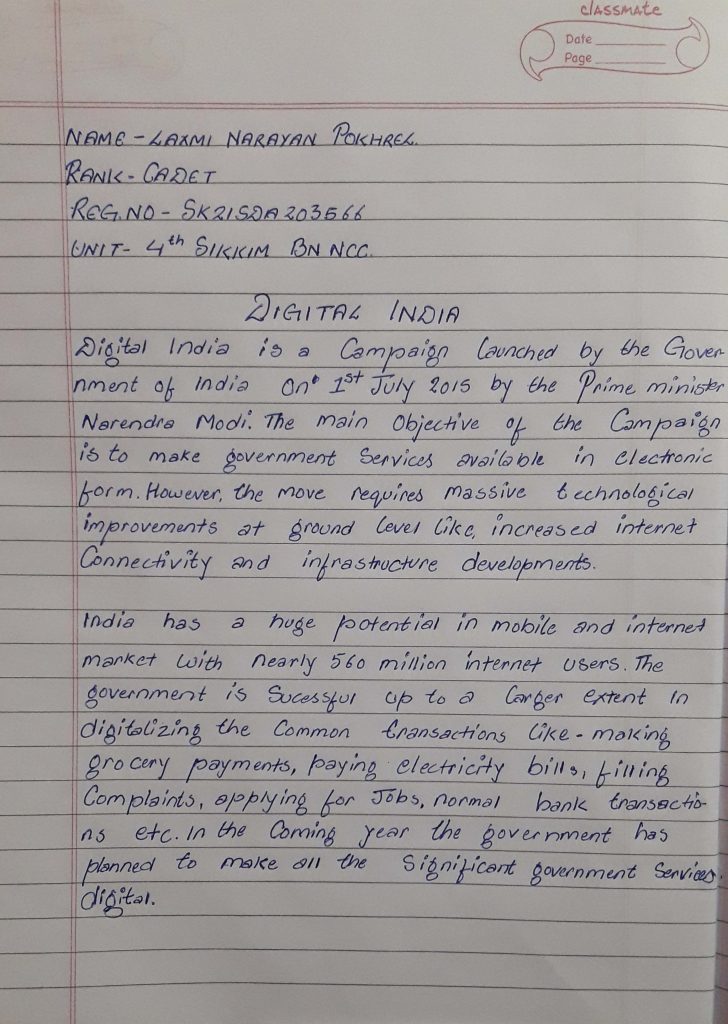 classmate
Date
Page
NAME - LAXMI NARAYAN POKHREL.
RANK - CADET
REG.NO - SK21SDA203566
UNIT - 4th SIKKIM BN NCC.
DIGITAL INDIA
Digital India is a Campaign launched by the Gover-
nment of India On 1st July 2015 by the Prime minister
Narendra Modi. The main Objective of the Campaign
is to make government Services available in electronic
form. However, the move requires massive technological
improvements at ground level like, increased internet
Connectivity and infrastructure developments.
India has a huge potential in mobile and internet
market with nearly 560 million internet users. The
government is Sucessful up to a larger extent in
digitalizing the Common transactions like - making
grocery payments, paying electricity bills, filling
Complaints, applying for Jobs, normal bank transactio-
ns etc. In the Coming year the government has
planned to make all the Significant government Services
digital.